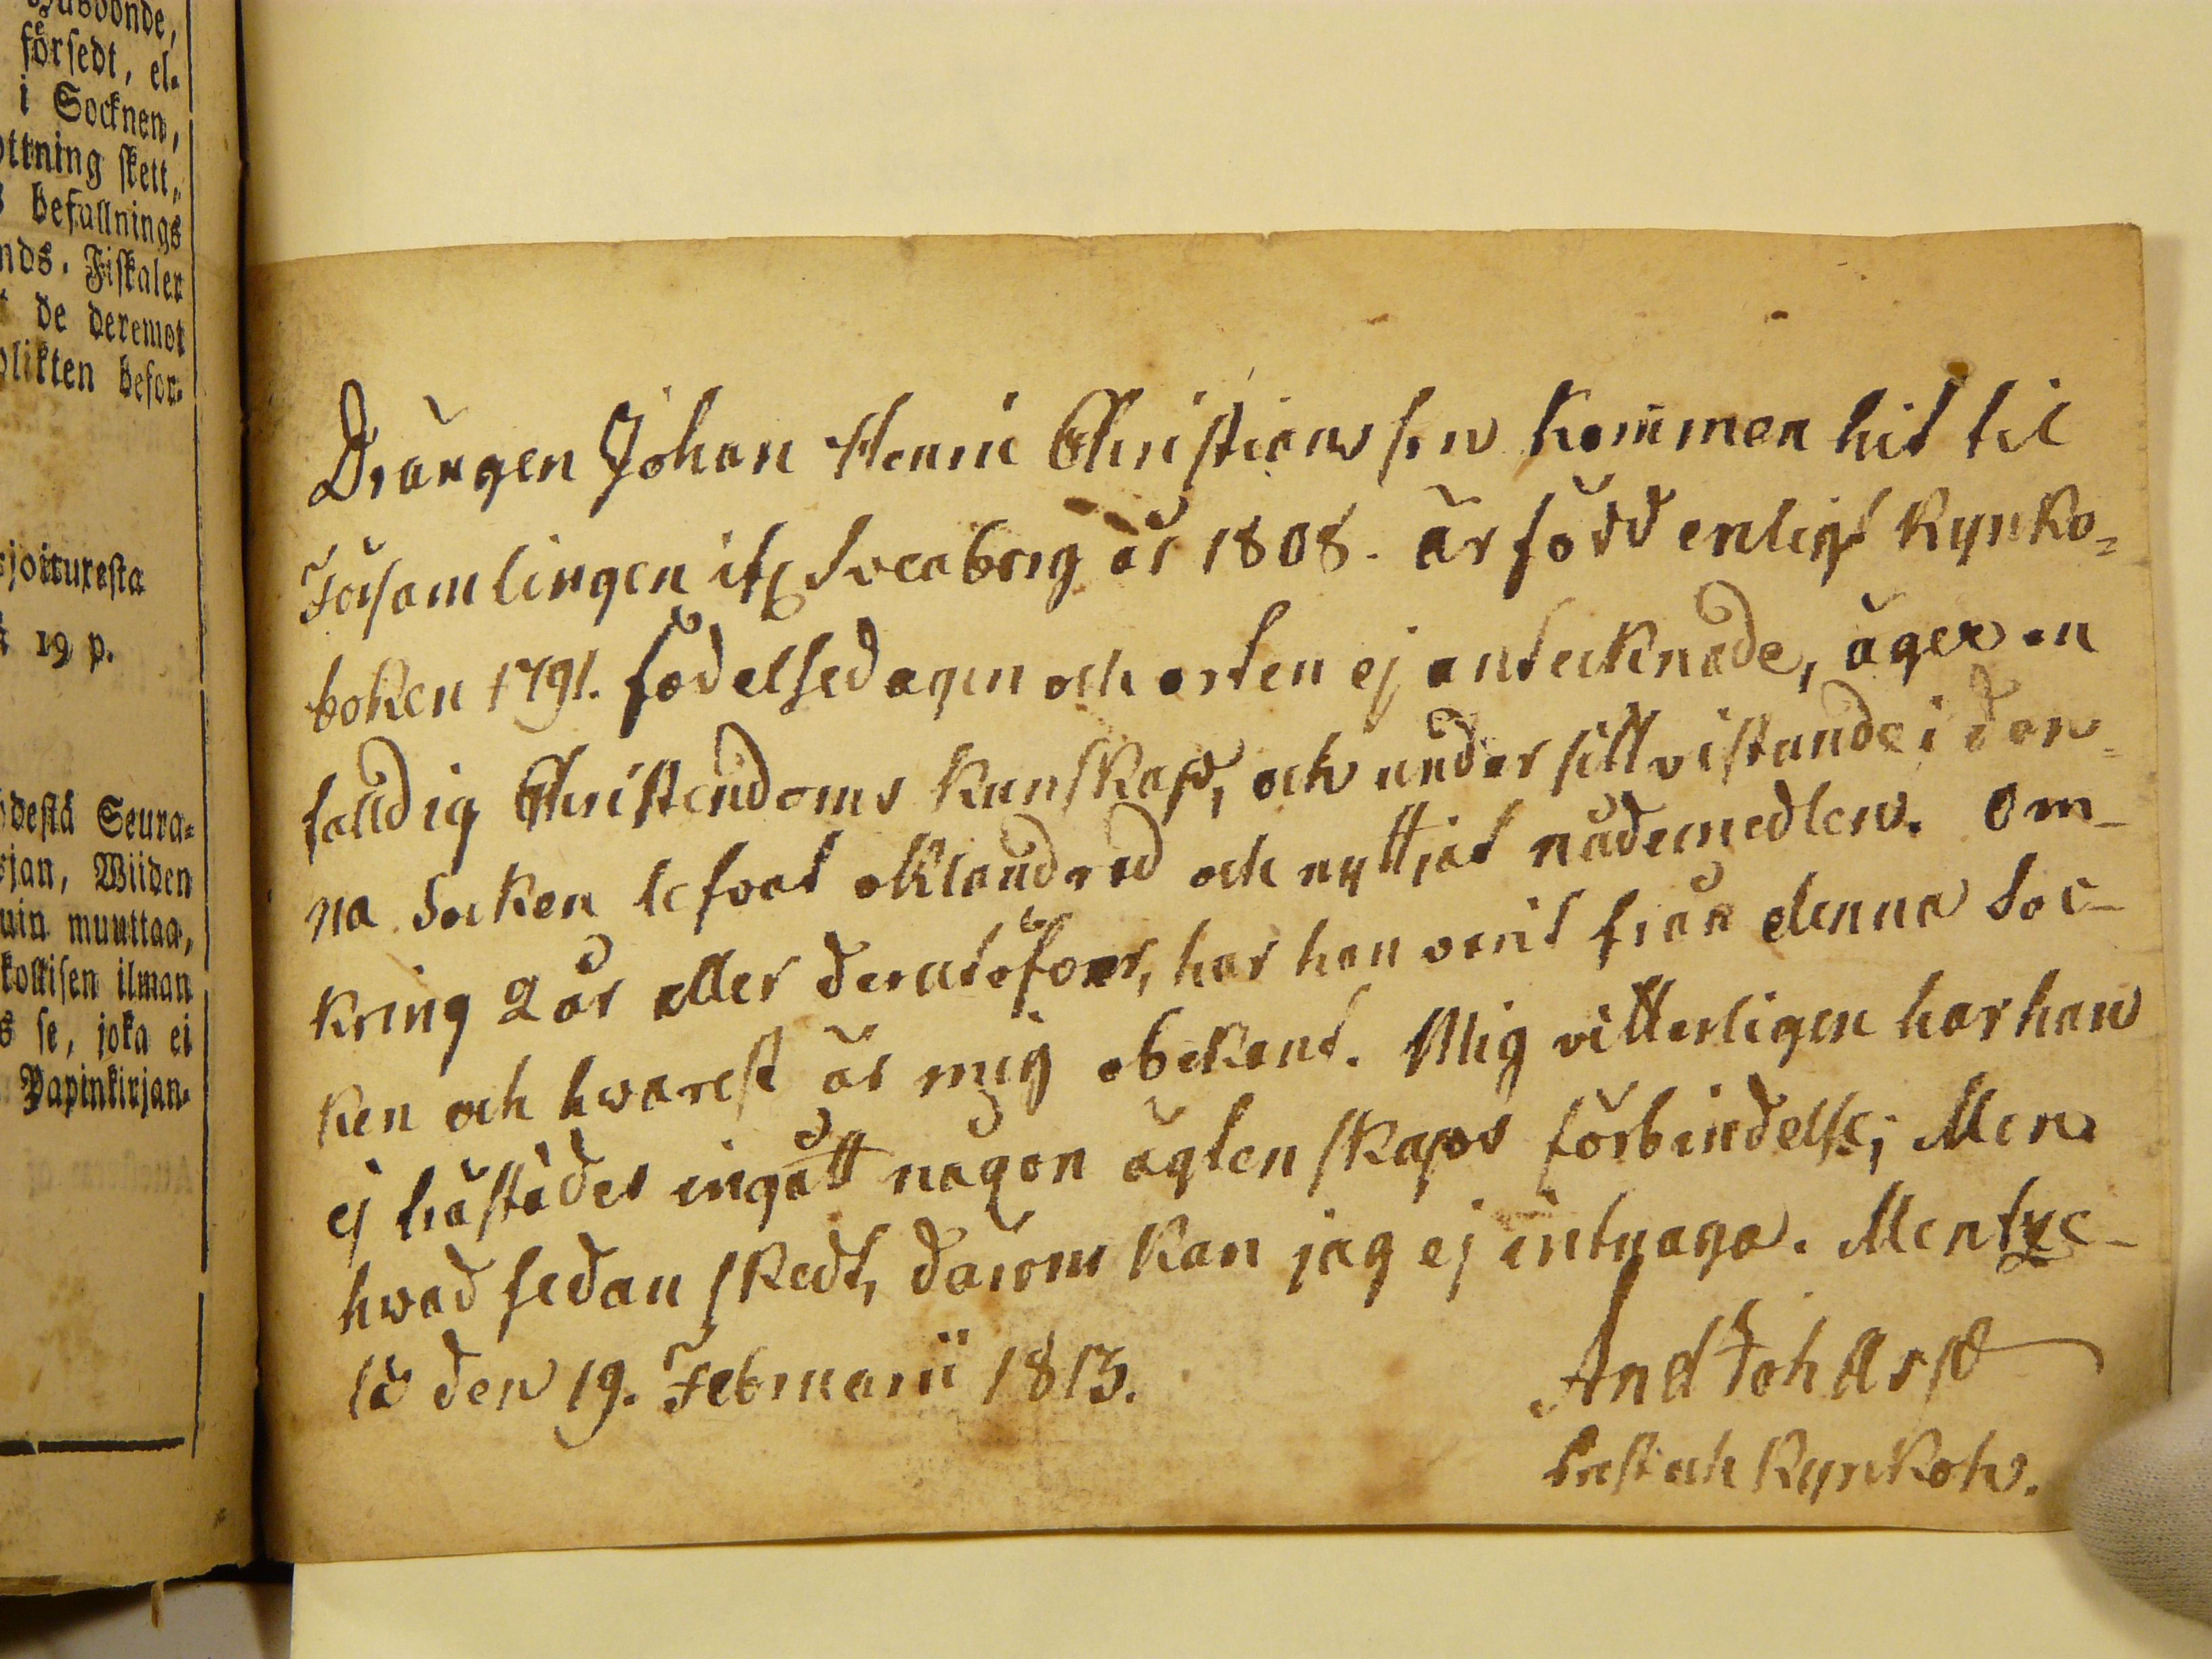 försedt, el-
i Socknen,
ttning skett,
befallnings
nds. Fiskaler
de deremot
plikten befor-
joituresta
19 p.
destä Seura-
jan, Wiiden
uin muuttaa,
kollisen ilman
s se, joka ei
Papinkirjan-
Drängen Johan Henric Christiansson kommen hit til
Församlingen ifr Sveaborg år 1808. är född enligt Kyrko-
boken 1791. födelsedagen och orten ej antecknade, äger en
falldig Christendoms kunskap, och under sitt vistande i den-
na Socken lefvat oklandrad och nyttjat nådemedlen. Om-
kring 2 år eller derutöfver, har han varit från denna Soc-
ken och hwarest är mig obekant. Mig vitterligen har han
ej härstädes ingått någon ägtenskaps förbindelse; Men
hwad sedan skedt, därom kan jag ej intyga. Mentze-
lä den 19. Februarii 1813.
And Joh Asp
Prest och Kyrkoh.